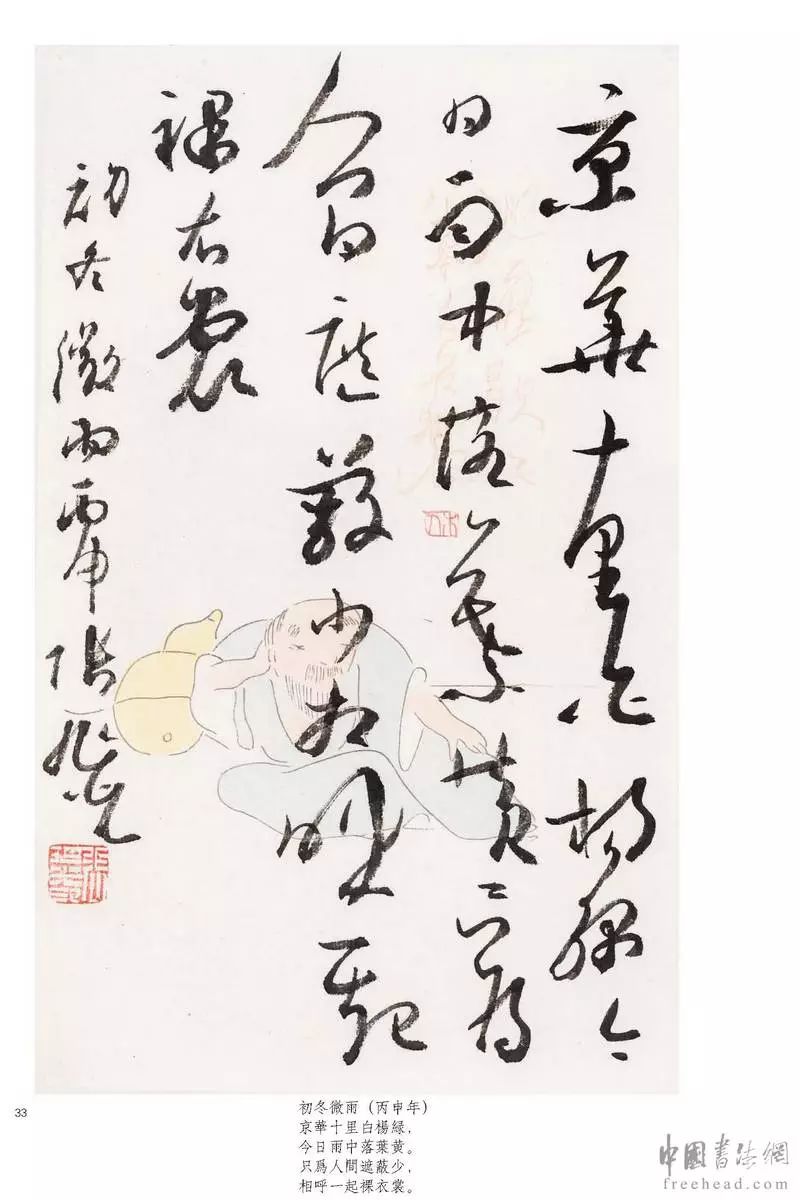 京華十里白楊緑今
日雨中落葉黄只爲
人間遮蔽少相呼一起
裸衣裳
初冬微雨丙申張旭光
33
初冬微雨（丙申年）
京華十里白楊緑，
今日雨中落葉黄。
只爲人間遮蔽少，
相呼一起裸衣裳。
中國書法網
freehead.com